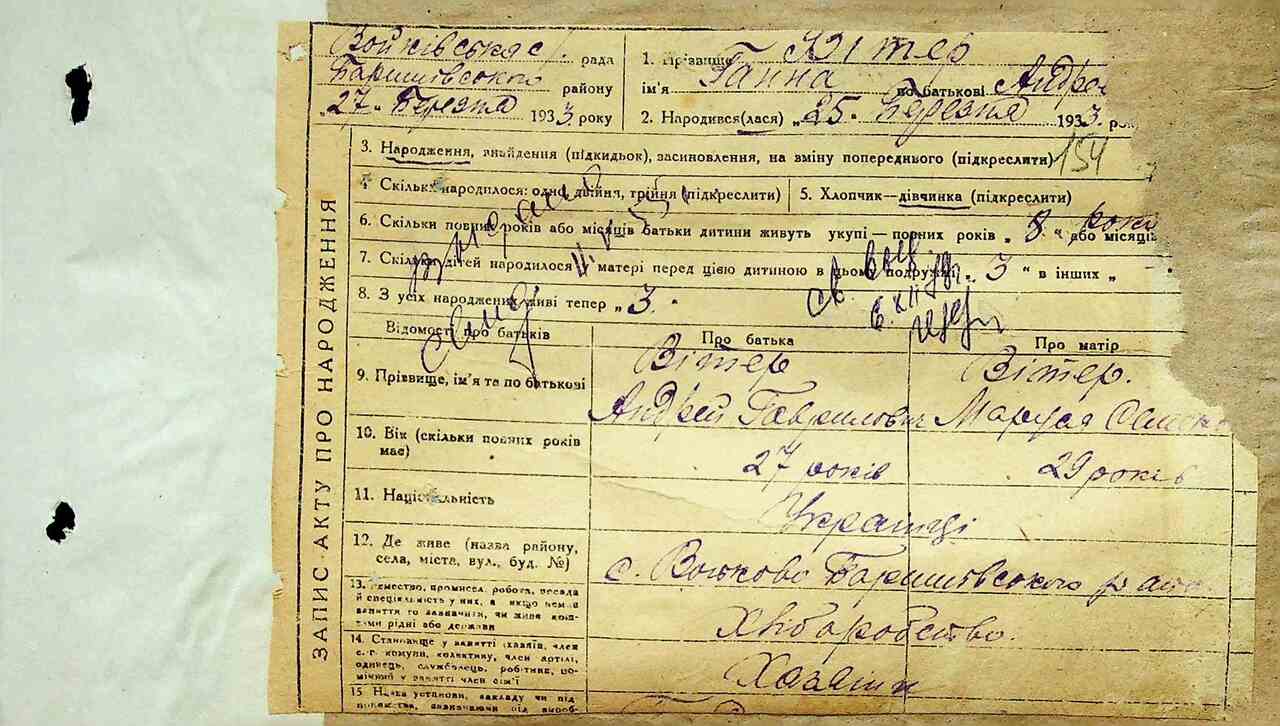 ЗАПИС АКТУ ПРО НАРОДЖЕННЯ
Войківська с/ рада
Баришівського району
„27“ Березня 1933 року
1. Прізвище Вітер
ім'я Ганна по батькові Андре
2. Народився(лася) „25“ Березня 1933 рок
154
3. Народження, знайдення (підкидьок), засиновлення, на вміну попереднього (підкреслити)
4 Скільки народилося: одно, двійня, трійня (підкреслити)
5. Хлопчик—дівчинка (підкреслити)
6. Скільки повних років або місяців батьки дитини живуть укупі — повних років „ 8 “ або місяців роки
7. Скільки дітей народилося у матері перед цією дитиною в цьому подружжі „ 3 “ в інших „
8. З усіх народжених живі тепер „ 3.
Відомості про батьків Про батька Про матір
9. Прізвище, ім'я та по батькові Вітер Вітер.
Андрей Гаврилович Маруся
10. Вік (скільки повних років має) 27 років 29 років
11. Національність Українці
12. Де живе (назва району, села, міста, вул., буд. №) с. Войково Баришівського району
13. семество, промисел, робота, посада й спеціяльність у них, а якщо немає заняття то зазначити, чи живе коштами рідні або держави Хліборобство.
14. Становище у занятті (хазяїн, член с.-г. комуни, колективу, член артілі, одинець, службовець, робітник, помічний у занятті член сім'ї Хазяїни
15. Назва установи, закладу чи підприємства, зазначаючи рід вироб-